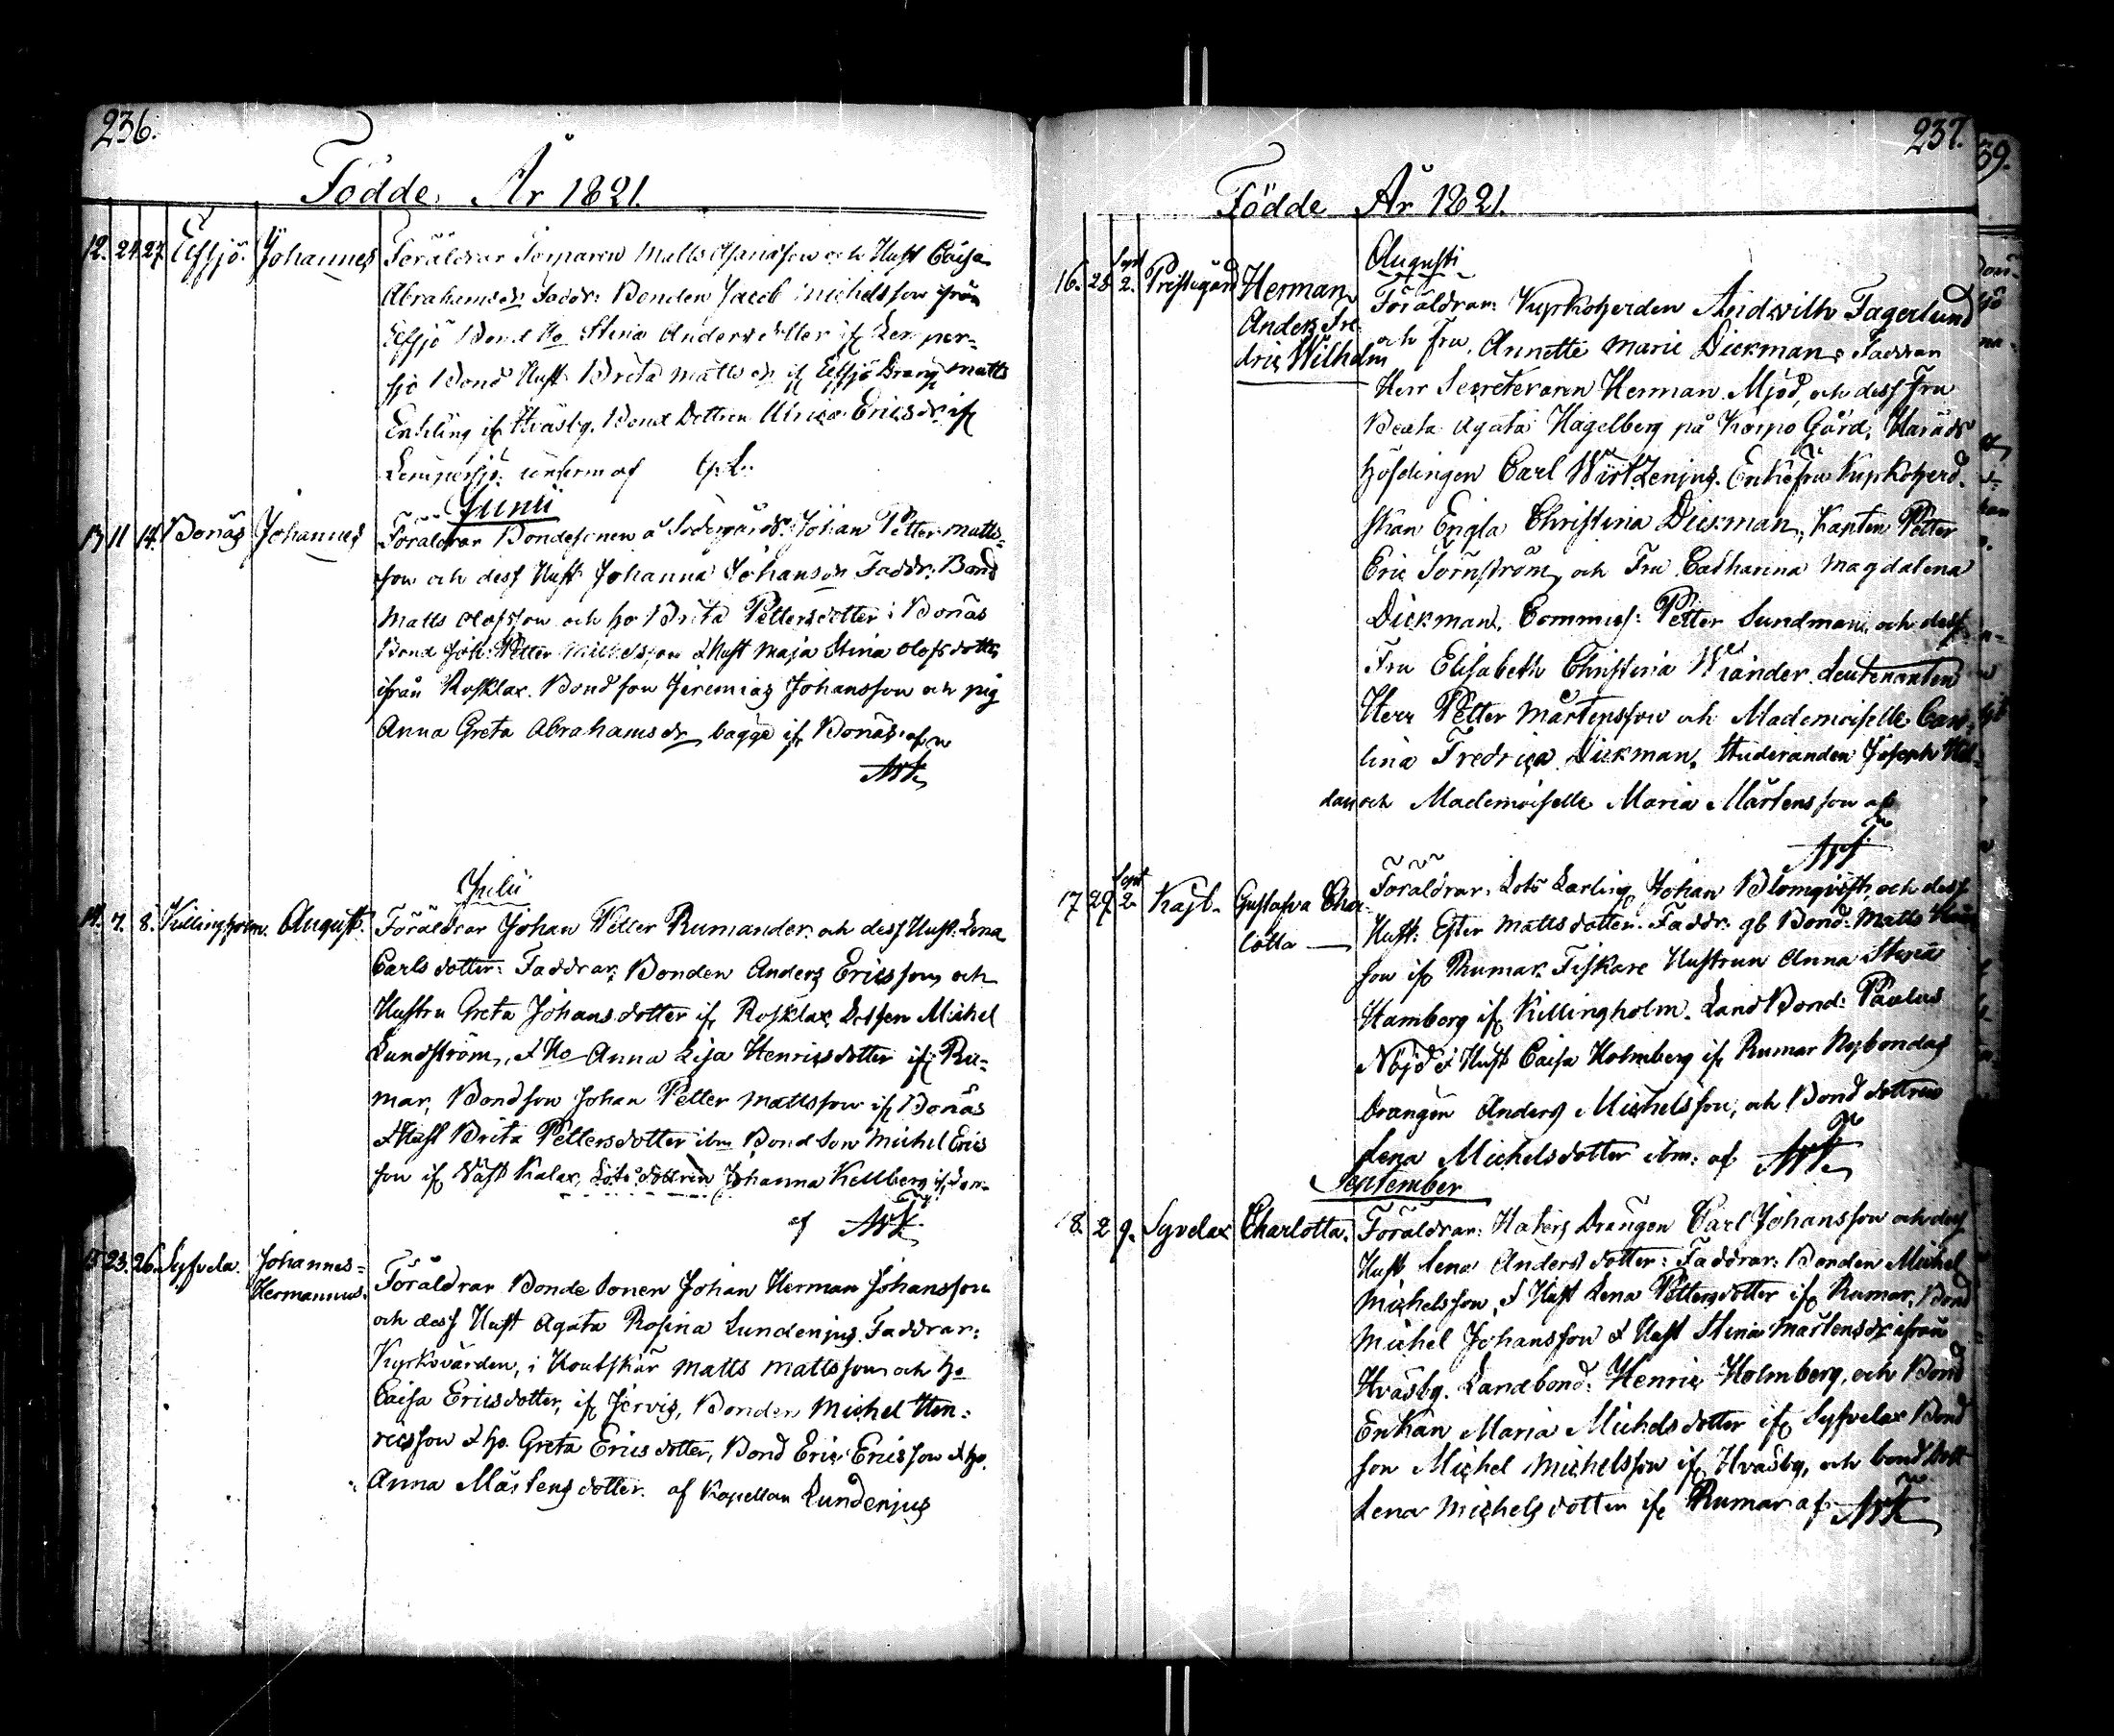 236.
Födde År 1821.
12. 24 27. Elfsjö. Johannes Föräldrar Torparen Matts och Hust Caisa
Abrahamsdr Faddr: Bonden Jacob Michelsson från
Elfsjö Bond Ho Stina Andersdotter if Lemper-
sjö Bond Hust Brita Mattsdr if Elfsjö Dräng Matts
Enkling if Hväsby. Bond Dottren Ulrica Ericsdr. if
Lempersjö. af G. L.
Junii
13 11 14. Bonäs Johannes Föräldrar Bondesonen å Södergårds: Johan Petter Matts-
son och dess Hust Johanna Johansdr Faddr: Bond
Matts Olofsson och ho Brita Pettersdotter i Bonäs
Bond Joh: Petter Michelsson & Hust Maja Stina Olofsdotter
ifrån Roslax. Bondson Jeremias Johansson och pig
Anna Greta Abrahamsdr bagge if Bonäs. af
Julii
14. 7. 8. Killingholm. August. Föräldrar Johan Petter Rumander och dess Hust. Lena
Carlsdotter: Faddrar, Bonden Anders Ericsson, och
Hustru Greta Johansdotter if Rosklax, Lotsen Michel
Lundström, & Ho Anna Lisa Henricsdotter if Ru-
mar, Bondson Johan Petter Mattsson if Bonäs
& Hust Brita Pettersdotter ibm Bond Son Michel Erics
son if Väst Kalax, Lots dottren Johanna Kellberg
af
15 23. 26. Syfvela. Johannes-
Hermannus. Föräldrar Bonde Sonen Johan Herman Johansson
och dess Hust Agata Rosina Lundenius. Faddrar:
Kyrkovärden, i Houtskär Matts Mattsson och ho
Caisa Ericsdotter, if Jervis, Bonden Michel Hen-
ricsson & ho. Greta Ericsdotter, Bond Eric Ericsson & ho.
Anna Mårtensdotter. af Kapellan Lundenius
237.
39.
Födde År 1821.
Augusti
16. 28 Sept 2. Prestegård Herman
Anders Fre
dric Wilhelm
Föräldrar: Kyrkoherden And. Wilh Fagerlund
och Fru, Annette Marie Dickman, Faddrar
Herr Secreteraren Herman Mjöd, och dess Fru
Beata Agata Hagelberg på Korpo Gård, Härads
Höfdingen Carl Wirtzenius. Enkefru Kyrkoherd.
skan Engla Christina Dickman, Kapten Petter
Eric Törnström, och Fru Catharina Magdalena
Dickman. Commiss: Petter Sundman, och dess
Fru Elisabeth Christina Wiander. Leutenanten
Herr Petter Mårtensson och Mademoiselle Caro-
lina Fredrica Dickman. Studeranden Joseph
dan och Mademoiselle Maria Mårtensson af
17 29. Sept 2. Kajt- Gustafva Char-
lotta — Föräldrar, Lots Lärling, Johan Blomqvist, och dess
Hust: Ester Mattsdotter. Faddr: gb Bond: Matts
son if Rumar. Fiskare Hustrun Anna Stina
Hamberg if Killingholm. Land Bond: Paulus
Nöjd & Hust Caisa Holmberg if Rumar Nybondas
Drängen Anders Michelsson, och Bond dottren
Lena Michelsdotter ibm: af
September
18. 2 9. Syvelax Charlotta. Föräldrar: Drängen Carl Johansson och dess
Hust Lena Andersdotter: Faddrar: Bonden Michel
Michelsson, & Hust Lena Pettersdotter if Rumar, Bond
Michel Johansson & Hust Stina Mårtensdr ifrån
Hväsby. Landbond: Henric Holmberg, och Bond
Enkan Maria Michelsdotter if Syfvelax Bond
son Michel Michelsson if Hväsby, och bond Dott
Lena Michelsdotter if Rumar af